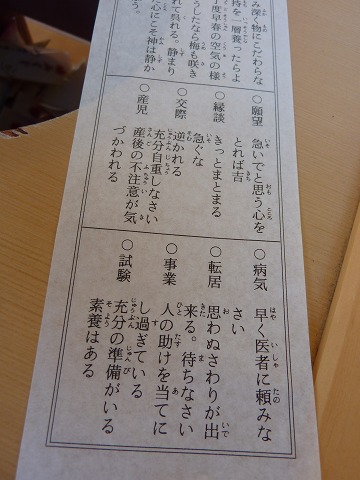 み深く物にこだわらな
持を一層養ったらよ
丁度早春の空気の様
うしたら梅も咲き
れて呉れる。静まり
心にこそ神は静か
う。
○願望
急いでと思う心を
とれば吉
○縁談
きっとまとまる
急ぐな
○交際
逆かれる
充分自重しなさい
○産児
産後の不注意が気
づかわれる
○病気
早く医者に頼みな
さい
○転居
思わぬさわりが出
来る。待ちなさい
○事業
人の助けを当てに
し過ぎている
○試験
充分の準備がいる
素養はある